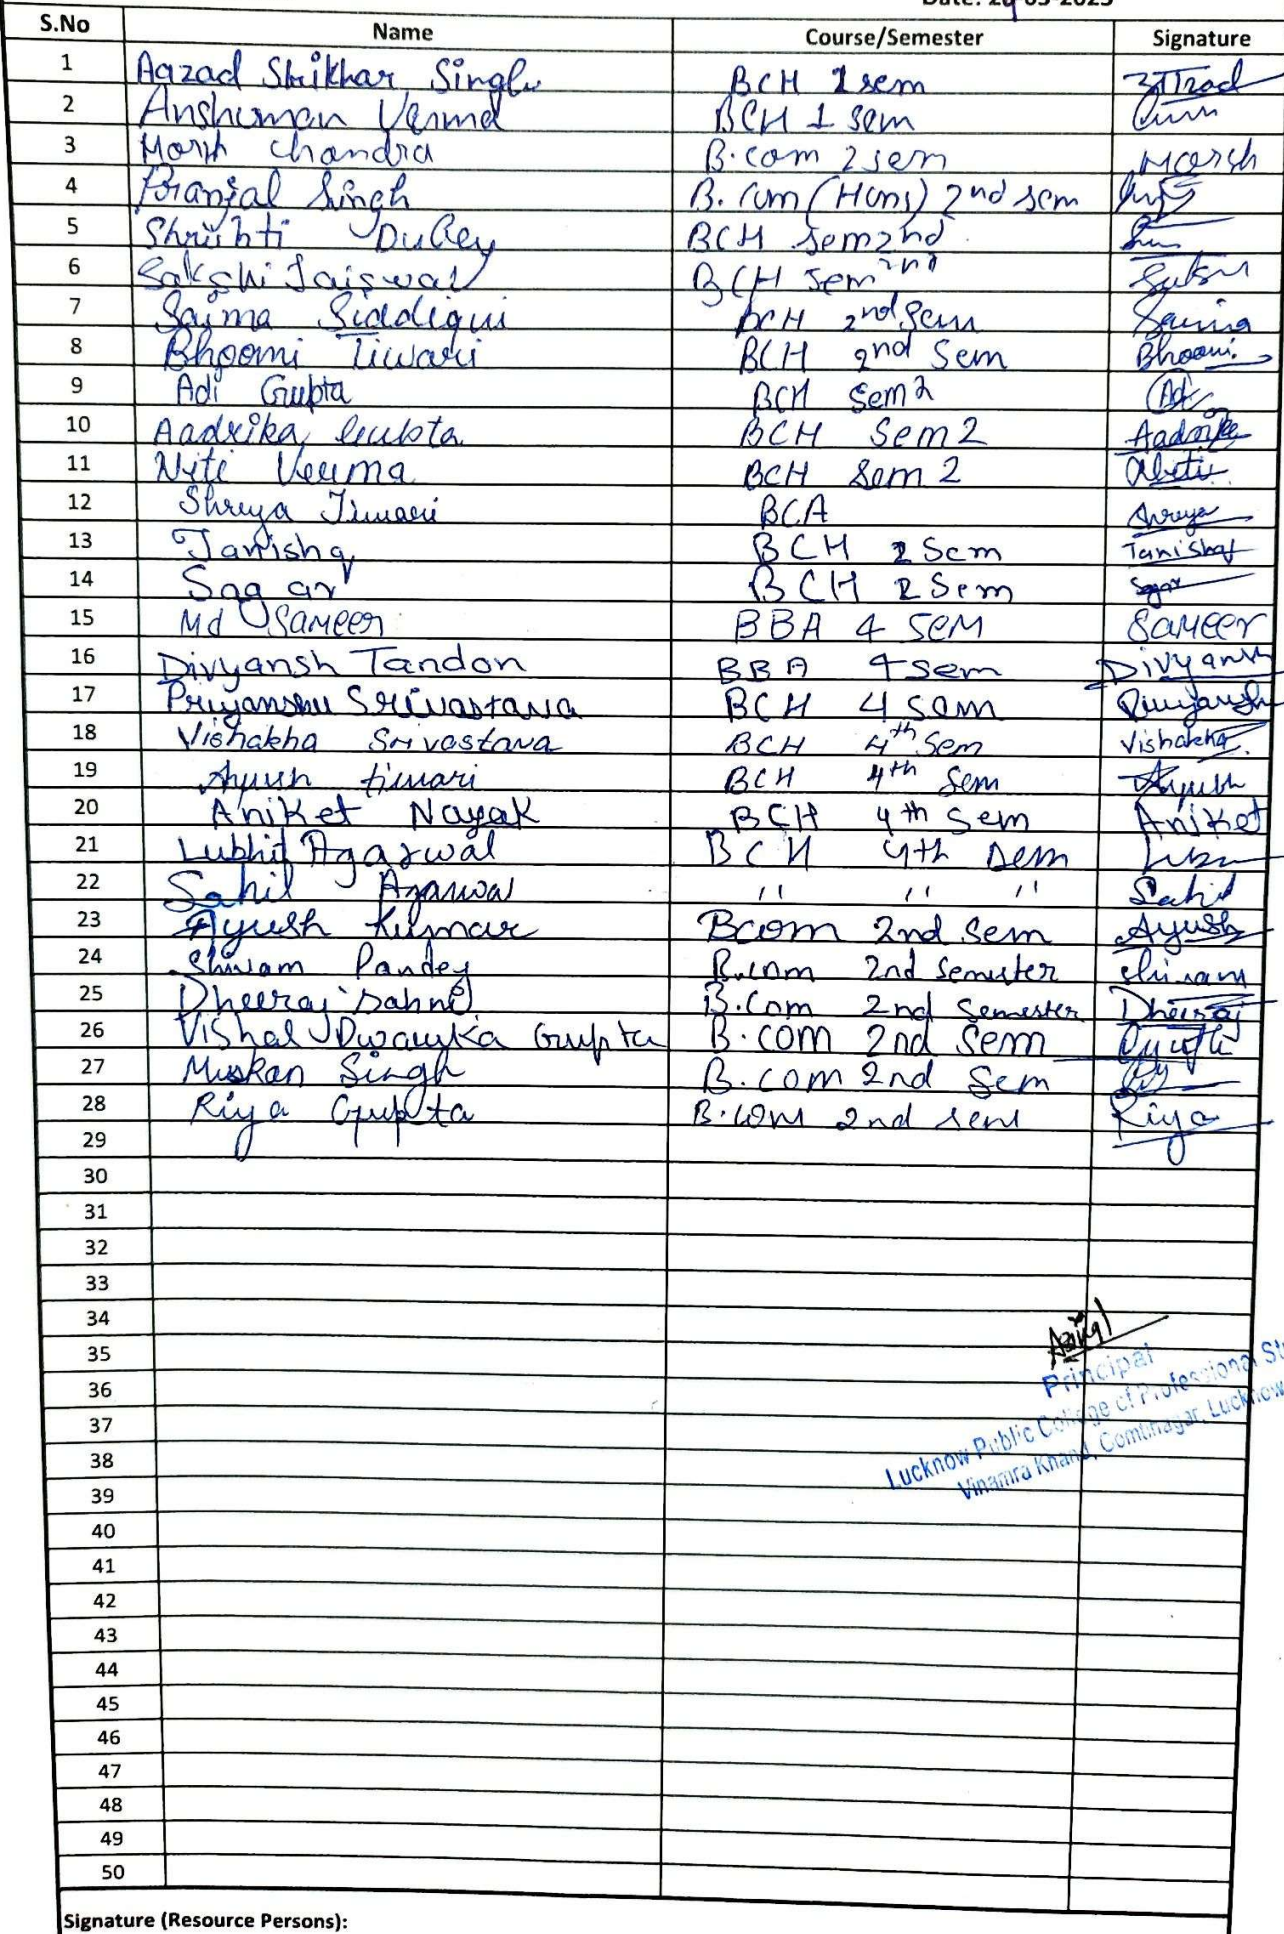 S.No Name Course/Semester Signature
1 Aazad Shikhar Singh BCH 1 sem आज़ाद
2 Anshuman Verma BCH 1 sem
3 Harsh Chandra B.com 2 sem Harsh
4 Pranjal Singh B.com (Hons) 2nd sem
5 Shrishti Dubey BCH Sem 2nd
6 Sakshi Jaiswal BCH Sem 2nd
7 Saima Siddiqui BCH 2nd Sem Saima
8 Bhoomi Tiwari BCH 2nd Sem Bhoomi
9 Adi Gupta BCH Sem 2 Adi
10 Aadrika Gupta BCH Sem 2 Aadrika
11 Niti Verma BCH Sem 2
12 Shreya Tiwari BCA Shreya
13 Tanishq BCH 2 Sem Tanishq
14 Sagar BCH 2 Sem Sagar
15 Md SAMEER BBA 4 SEM SAMEER
16 Divyansh Tandon BBA 4 sem Divyansh
17 Priyanshu Srivastava BCH 4 sem Priyanshu
18 Vishakha Srivastava BCH 4th Sem Vishakha
19 Ayush tiwari BCH 4th Sem Ayush
20 Aniket Nayak BCH 4th Sem Aniket
21 Lubhit Agarwal BCH 4th Sem
22 Sahil Agarwal " " " Sahil
23 Ayush Kumar Bcom 2nd Sem Ayush
24 Shivam Pandey B.com 2nd Semester Shivam
25 Dheeraj Sahni B.Com 2nd Semester Dheeraj
26 Vishal Dwarka Gupta B.COM 2nd Sem
27 Muskan Singh B.com 2nd Sem
28 Riya Gupta B.com 2nd sem Riya
29
30
31
32
33
34
35
Principal
36
Lucknow Public College of Professional
37
Vinamra Khand, Gomtinagar, Lucknow
38
39
40
41
42
43
44
45
46
47
48
49
50
Signature (Resource Persons):